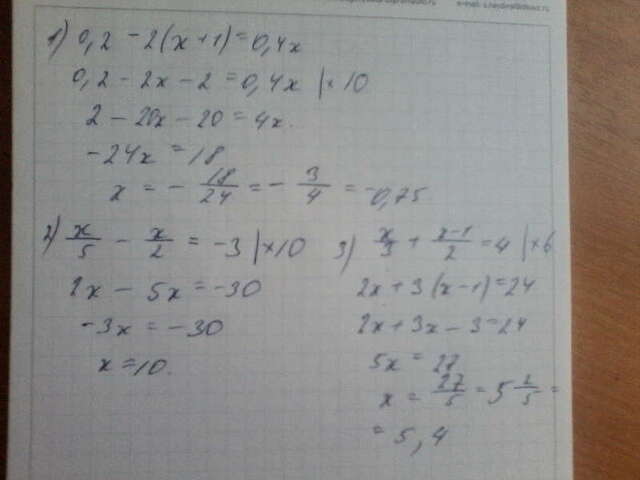 1) 0,2 - 2(x+1) = 0,4x
0,2 - 2x - 2 = 0,4x |×10
2 - 20x - 20 = 4x.
-24x = 18
x = - 18/24 = - 3/4 = -0,75
2) x/5 - x/2 = -3 |×10
2x - 5x = -30
-3x = -30
x = 10.
3) x/3 + x-1/2 = 4 |×6
2x + 3(x-1) = 24
2x + 3x - 3 = 24
5x = 27
x = 27/5 = 5 2/5 =
= 5,4